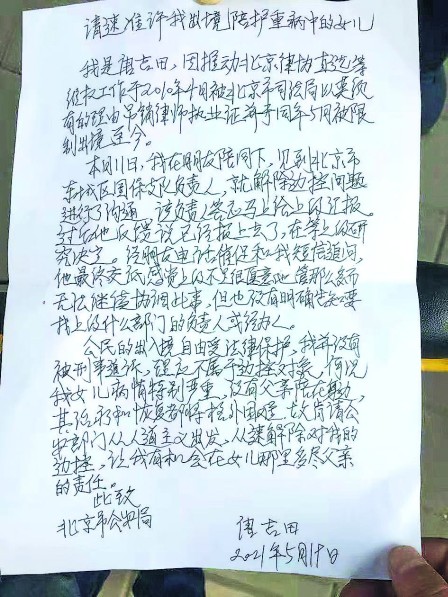 请速准许我出境陪护重病中的女儿
我是唐吉田,因推动北京律协直选等
维权工作于2010年4月被北京市司法局以莫须
有的理由吊销律师执业证并于同年5月被限
制出境至今。
本月11日,我在朋友陪同下,见到北京市
东城区国保支队负责人,就解除边控问题
进行了沟通。该负责人答应马上给上级汇报。
过后他反馈说已经报上去了,在等上级研
究决定。经朋友电话催促和我短信追问,
他最终交底感觉上级不是很愿意他管那么多而
无法继续协调此事,但也没有明确告知要
找上级什么部门的负责人或经办人。
公民的出入境自由受法律保护,我并没有
被刑事追诉,理应不属于边控对象。何况
我女儿病情特别严重,没有父亲陪在身边,
其治疗和恢复都将格外困难。故肯请公
安部门从人道主义出发,从速解除对我的
边控,让我有机会在女儿那里多尽父亲
的责任。
此致
北京市公安局
唐吉田
2021年5月19日